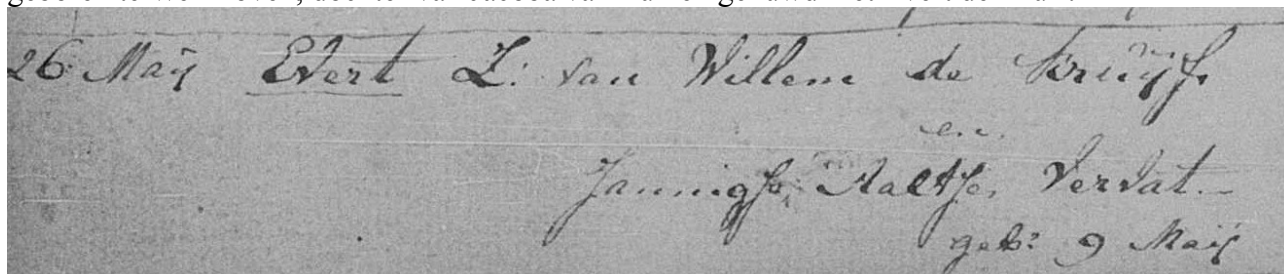 26 Maij Evert Z: van Willem de Kruijf
en
Jannigje Aaltje Vervat.
geb: 9 Maij